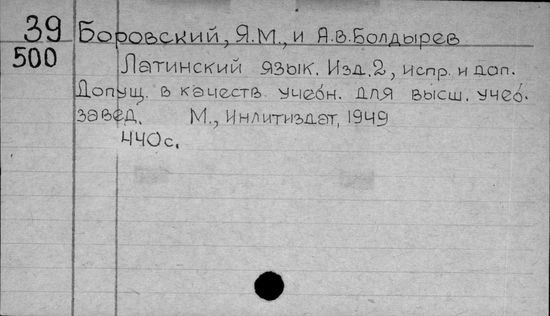 39 Боровский, Я.М., и А.В.Болдырев
500 Латинский язык. Изд.2, испр. и доп.
Допущ. в качеств. учебн. для высш. учеб.
завед. М., Инлитиздат, 1949
440с.